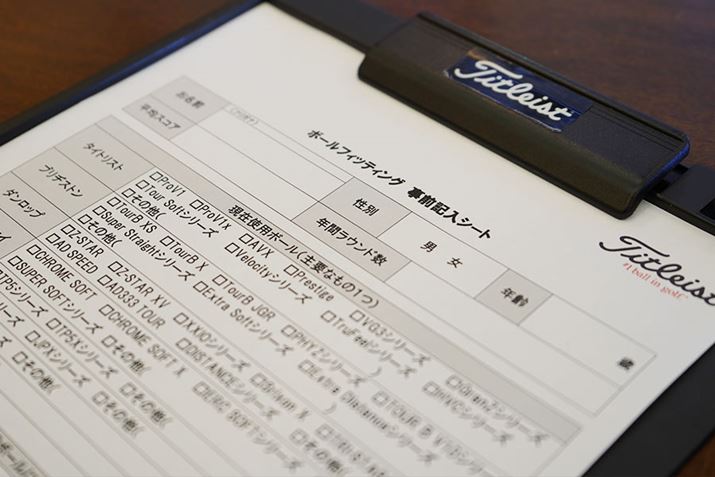 Titleist
ボールフィッティング 事前記入シート
Titleist
#1 ball in golf
お名前
フリガナ
性別
男 女
年齢
歳
平均スコア
年間ラウンド数
現在使用ボール(主要なもの1つ)
タイトリスト
□ProV1 □ProV1x □AVX □Prestige □VG3シリーズ □GranZシリーズ
□Tour Softシリーズ □Velocityシリーズ □TruFeelシリーズ
□その他(
ブリヂストン
□TourB XS □TourB X □TourB JGR □PHYZシリーズ
□Super Straightシリーズ □Extra Softシリーズ □Extra Distanceシリーズ
□その他(
ダンロップ
□Z-STAR □Z-STAR XV □XXIOシリーズ
□ADSPEED □AD333 TOUR □DISTANCEシリーズ
□その他(
□CHROME SOFT □CHROME SOFT X □ERC SOFTシリーズ
□SUPER SOFTシリーズ □その他(
TP5シリーズ □TP5Xシリーズ □その他(
□JPXシリーズ □その他(
□その他(